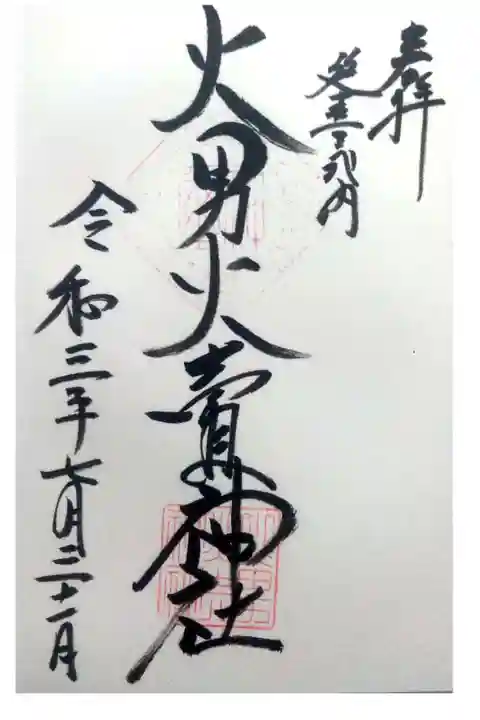 奉拝
延喜式内
火男火賣神社
令和三年七月三十一日